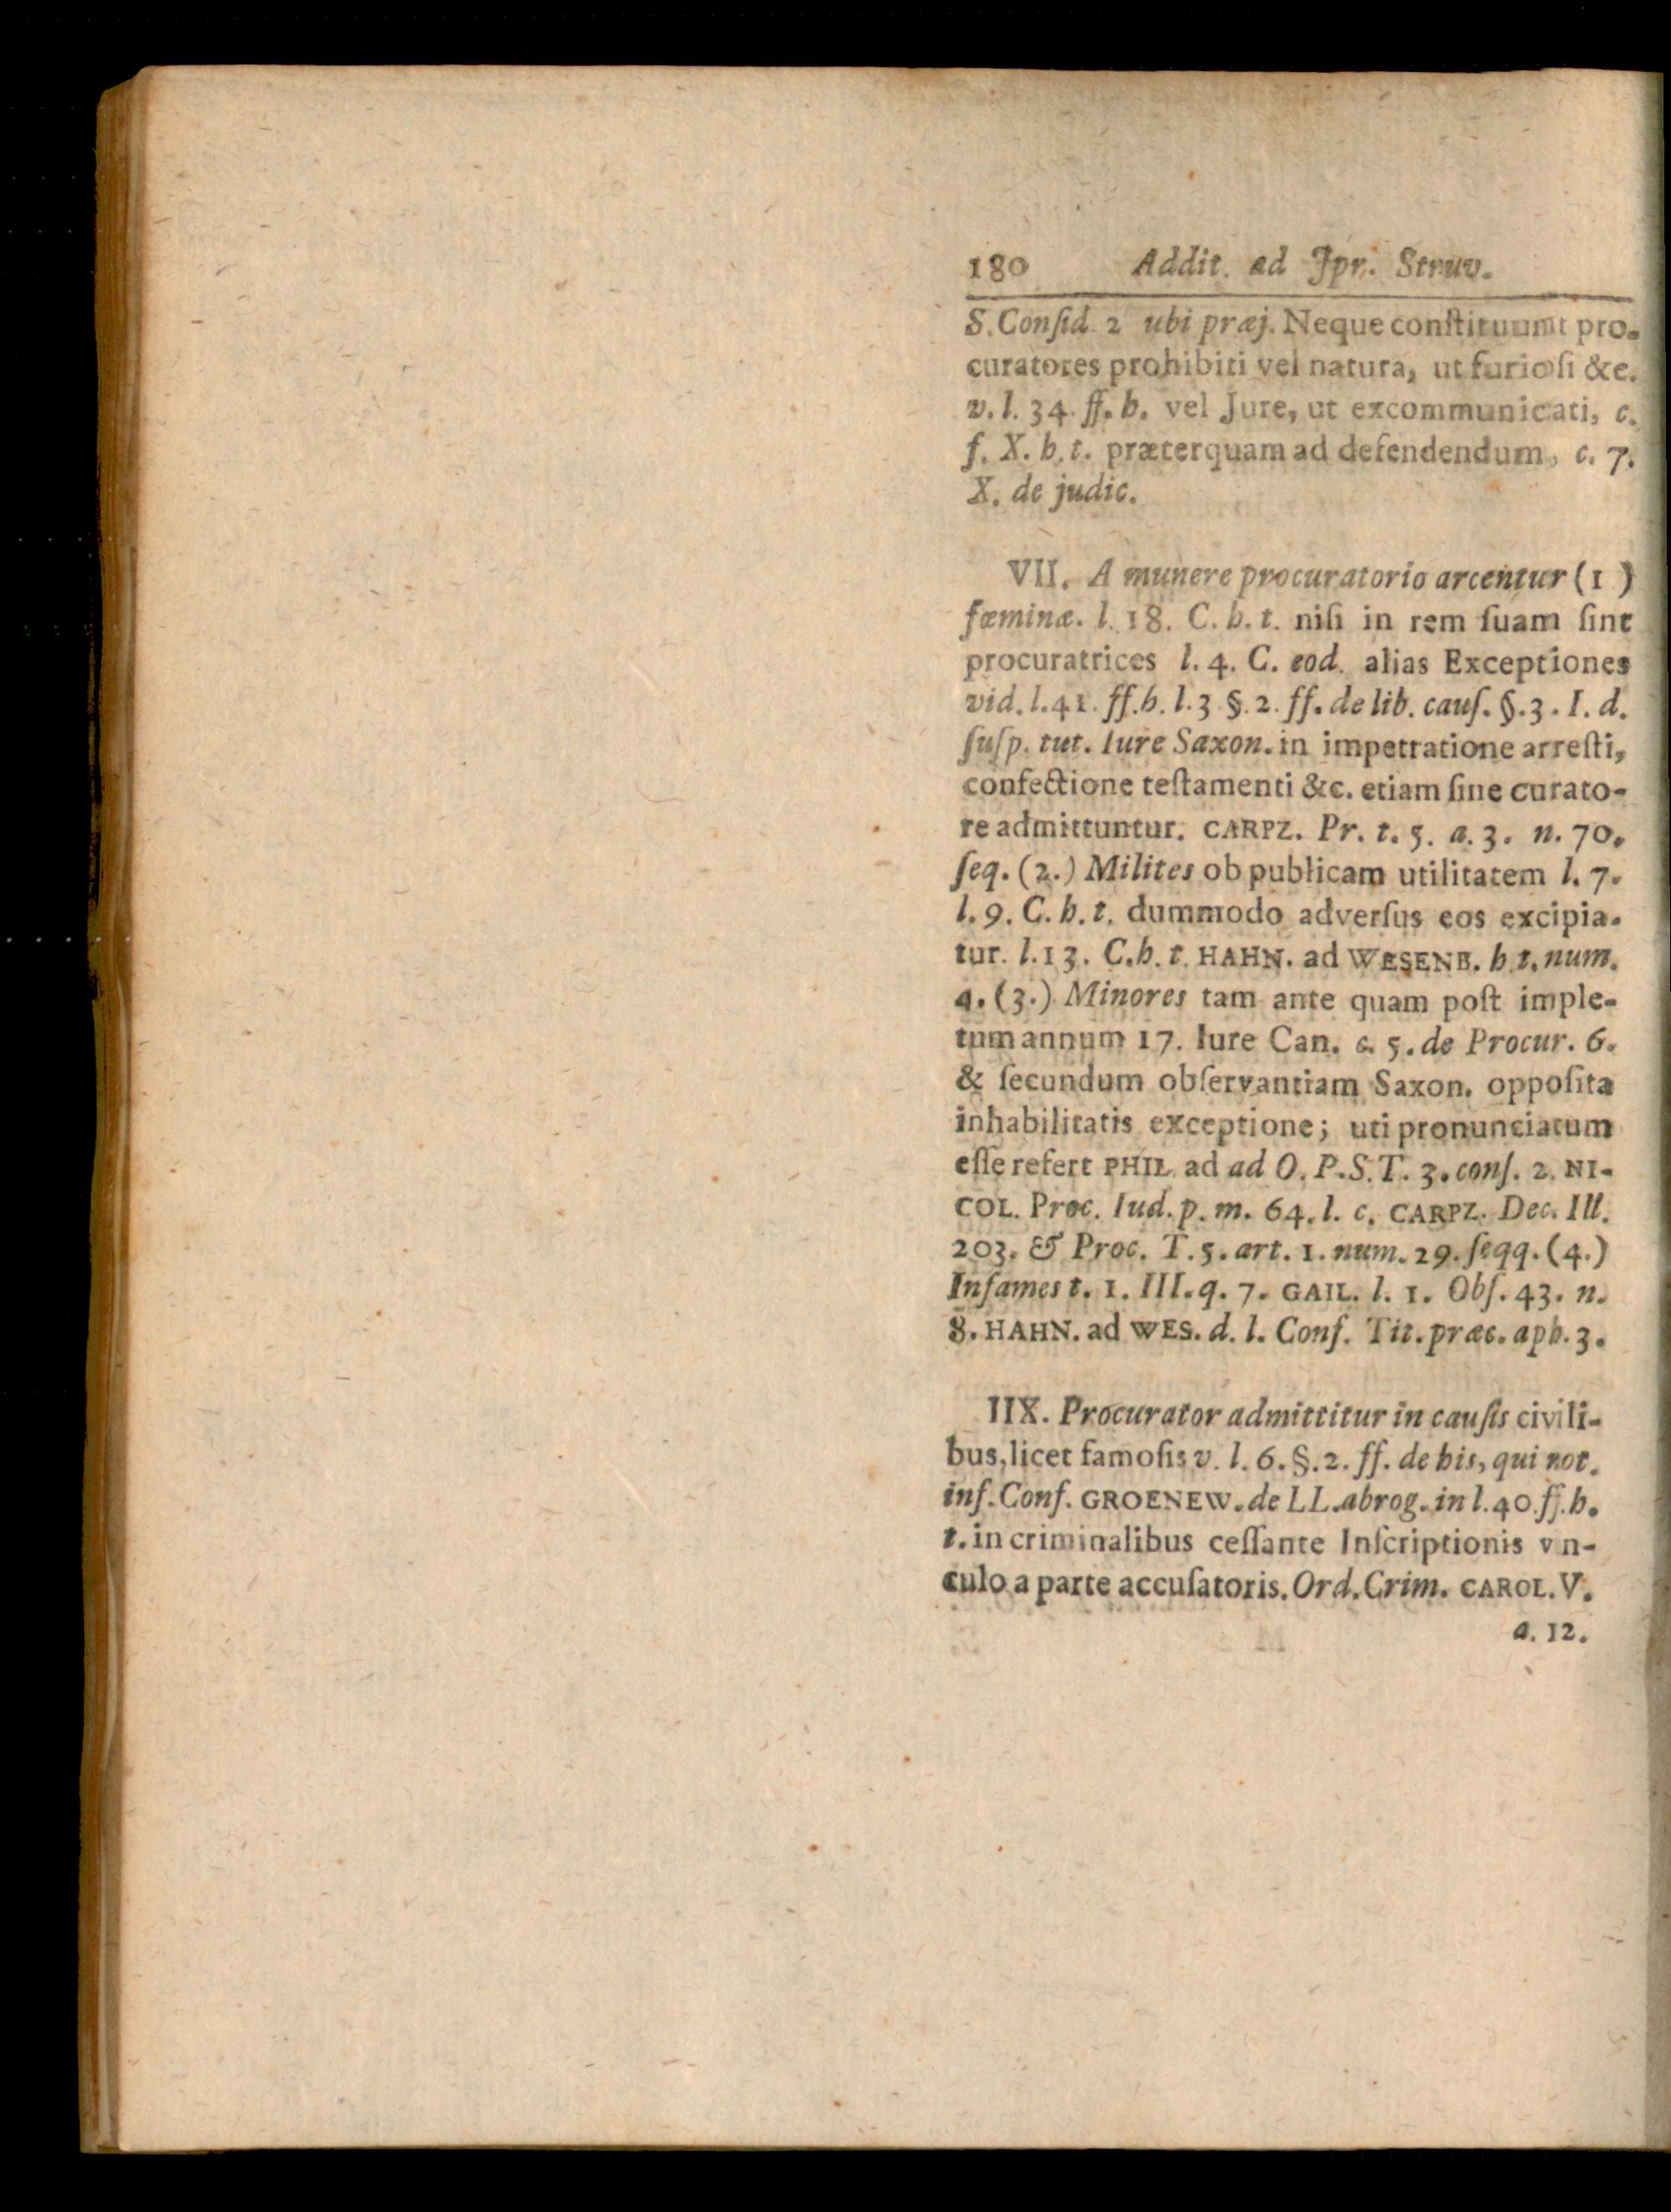 180 Addit. ad Jpr. Struv.
S. Conſid. 2 ubi præj. Neque conſtituunt pro-
curatores prohibiti vel natura, ut furioſi &c.
v. l. 34. ff. h. vel Jure, ut excommunicati, c.
f. X. h. t. præterquam ad defendendum, c. 7.
X. de judic.
VII. A munere procuratorio arcentur (1)
fœminæ. l. 18. C. h. t. niſi in rem ſuam ſint
procuratrices l. 4. C. eod. alias Exceptiones
vid. l. 41. ff. h. l. 3 §. 2. ff. de lib. cauſ. §. 3. I. d.
ſuſp. tut. Iure Saxon. in impetratione arreſti,
confectione teſtamenti &c. etiam ſine curato-
re admittuntur. CARPZ. Pr. t. 5. a. 3. n. 70.
ſeq. (2.) Milites ob publicam utilitatem l. 7.
l. 9. C. h. t. dummodo adverſus eos excipia-
tur. l. 13. C. h. t. HAHN. ad WESENB. h t. num.
4. (3.) Minores tam ante quam poſt imple-
tum annum 17. Iure Can. c. 5. de Procur. 6.
& ſecundum obſervantiam Saxon. oppoſita
inhabilitatis exceptione; uti pronunciatum
eſſe refert PHIL. ad ad O. P. S. T. 3. conſ. 2. NI-
COL. Proc. Iud. p. m. 64. l. c. CARPZ. Dec. Ill.
203. & Proc. T. 5. art. 1. num. 29. ſeqq. (4.)
Infames t. 1. III. q. 7. GAIL. l. 1. Obſ. 43. n.
8. HAHN. ad WES. d. l. Conf. Tit. præc. aph. 3.
IIX. Procurator admittitur in cauſis civili-
bus, licet famoſis v. l. 6. §. 2. ff. de his, qui not.
inf. Conf. GROENEW. de LL. abrog. in l. 40. ff. h.
t. in criminalibus ceſſante Inſcriptionis v n-
culo a parte accuſatoris. Ord. Crim. CAROL. V.
a. 12.